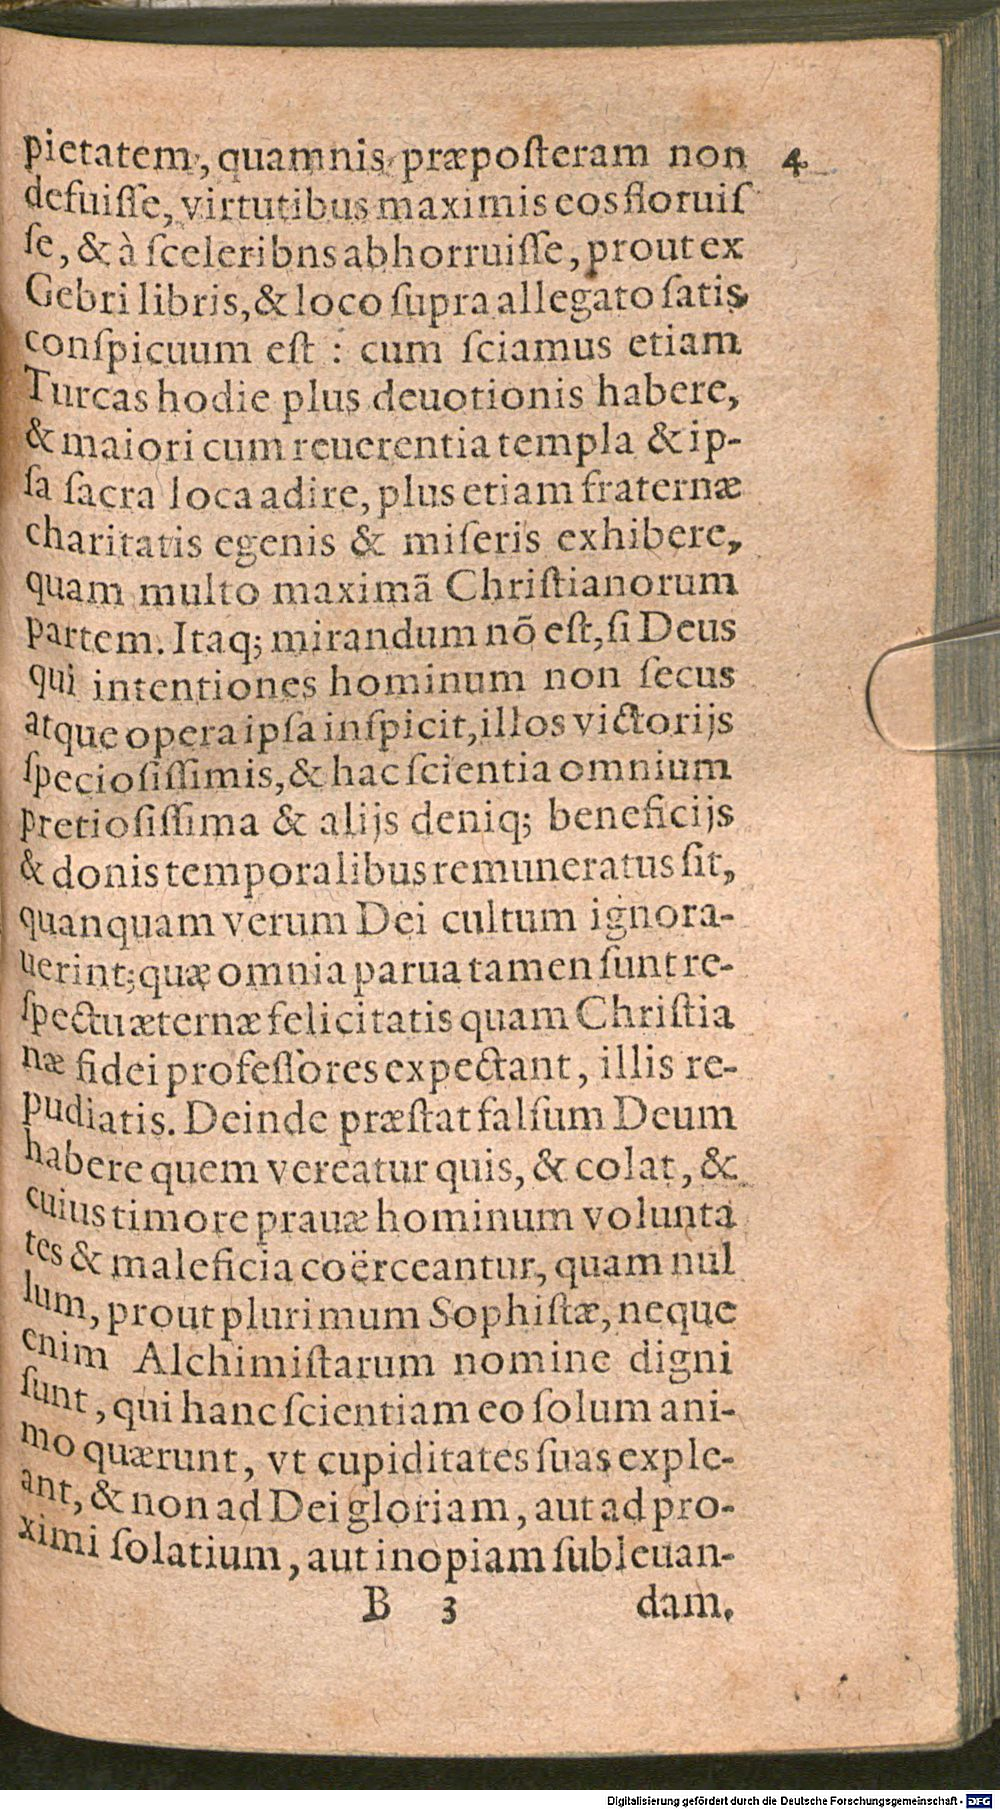 pietatem, quamnis præpoſteram non 4
defuiſſe, virtutibus maximis eos floruiſ
ſe, & à ſceleribns abhorruiſſe, prout ex
Gebri libris, & loco ſupra allegato ſatis
conſpicuum eſt : cum ſciamus etiam
Turcas hodie plus deuotionis habere,
& maiori cum reuerentia templa & ip-
ſa ſacra loca adire, plus etiam fraternæ
charitatis egenis & miſeris exhibere,
quam multo maximã Chriſtianorum
partem. Itaq; mirandum nõ eſt, ſi Deus
qui intentiones hominum non ſecus
atque opera ipſa inſpicit, illos victorijs
ſpecioſiſſimis, & hac ſcientia omnium
pretioſiſſima & alijs deniq; beneficijs
& donis temporalibus remuneratus ſit,
quanquam verum Dei cultum ignora-
uerint; quæ omnia parua tamen ſunt re-
ſpectu æternæ felicitatis quam Chriſtia
næ fidei profeſſores expectant, illis re-
pudiatis. Deinde præſtat falſum Deum
habere quem vereatur quis, & colat, &
cuius timore prauæ hominum volunta
tes & maleficia coërceantur, quam nul
lum, prout plurimum Sophiſtæ, neque
enim Alchimiſtarum nomine digni
ſunt, qui hanc ſcientiam eo ſolum ani-
mo quærunt, vt cupiditates ſuas exple-
ant, & non ad Dei gloriam, aut ad pro-
ximi ſolatium, aut inopiam ſubleuan-
B 3 dam.
Digitalisierung gefördert durch die Deutsche Forschungsgemeinschaft - DFG